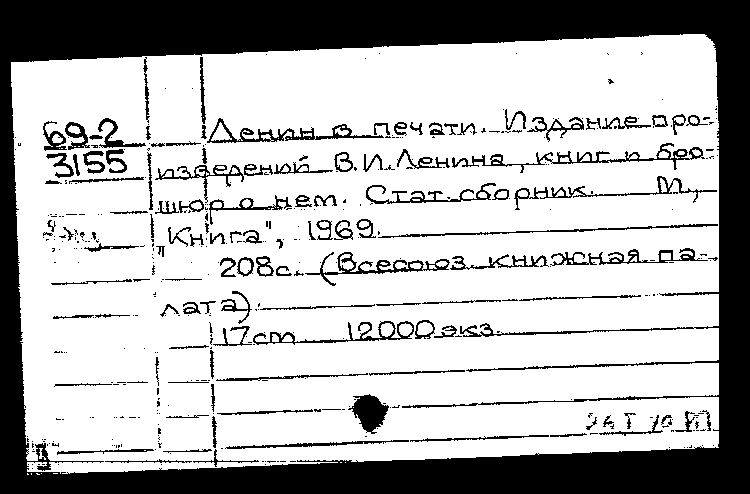 69-2
3155
Ленин в печати. Издание про-
изведений В.И.Ленина, книг и бро-
шюр о нем. Стат. сборник. М.,
"Книга", 1969.
208с. (Всесоюз. книжная па-
лата).
17 cm 12000 экз.